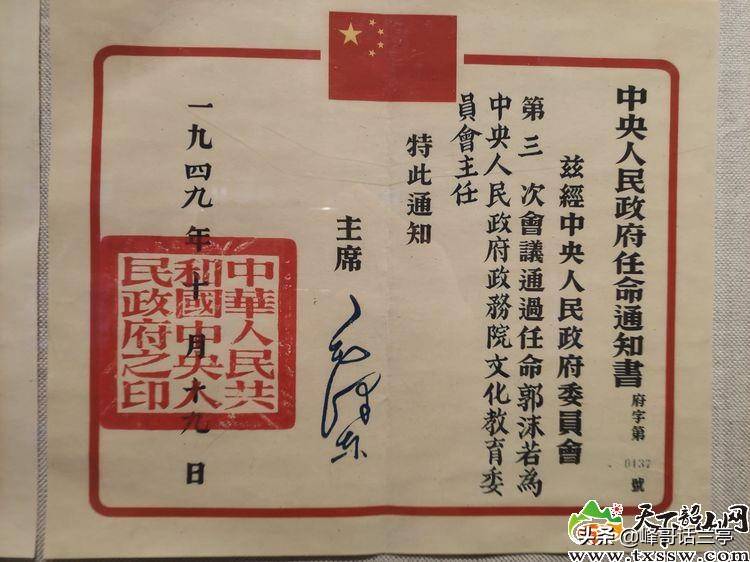 中央人民政府任命通知書
府字第 0437 號
茲經中央人民政府委員會
第三次會議通過任命郭沫若為
中央人民政府政務院文化教育委
員會主任
特此通知
主席 毛澤東
一九四九年十月十九日
中華人民共
和國中央人
民政府之印
天下韶山网
头条 @峰哥话兰亭
www.txssw.com